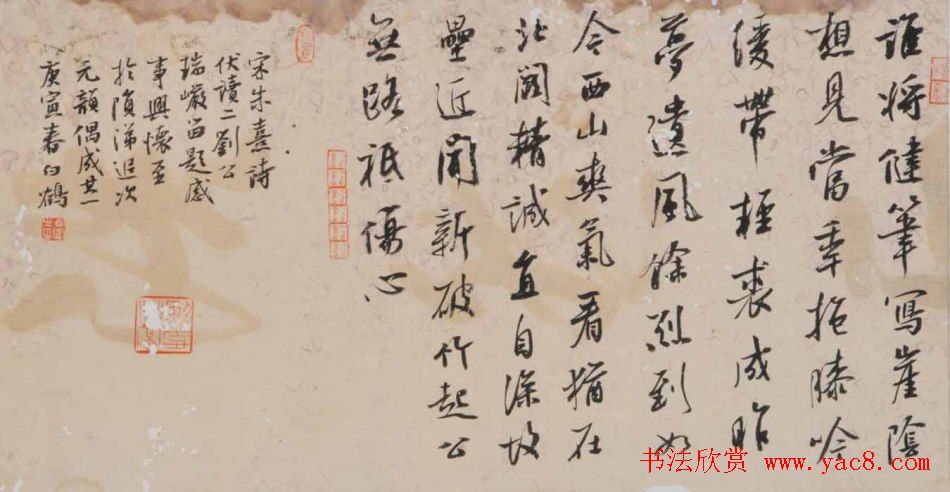 誰將健筆寫崖陰
想見當年抱膝吟
緩帶輕裘成昨
夢遺風餘烈到如
今西山爽氣看猶在
北闕精誠直自深故
壘近聞新破竹起公
無路祗傷心
宋朱熹詩
伏讀二劉公
瑞巖留題感
事興懷至
於隕涕追次
元韻偶成其一
庚寅春白鶴
书法欣赏 www.yac8.com